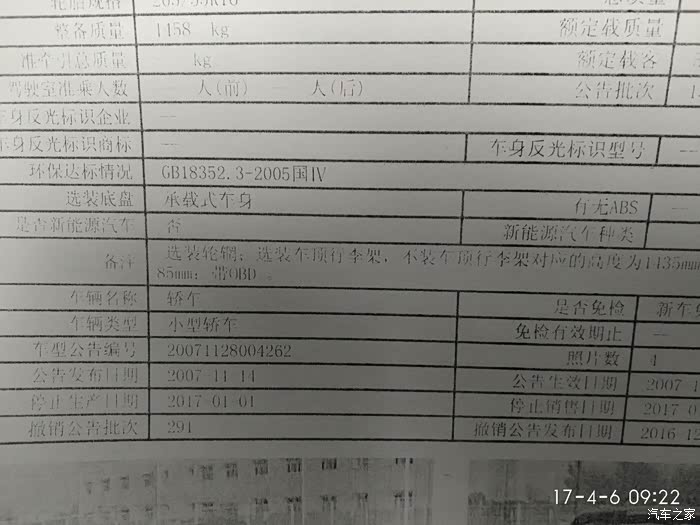 轮胎规格 205/55R16 总质量
整备质量 1458 kg 额定载质量
准牵引总质量 — kg 额定载客
驾驶室准乘人数 — 人(前) — 人(后) 公告批次
车身反光标识企业 —
车身反光标识商标 — 车身反光标识型号 —
环保达标情况 GB18352.3-2005国Ⅳ
选装底盘 承载式车身 有无ABS —
是否新能源汽车 否 新能源汽车种类
备注 选装轮辋; 选装车顶行李架, 不装车顶行李架对应的高度为1435mm
85mm; 带OBD 。
车辆名称 轿车 是否免检 新车
车辆类型 小型轿车 免检有效期止 —
车型公告编号 20071128004262 照片数 4
公告发布日期 2007-11-14 公告生效日期 2007-1
停止生产日期 2017-01-01 停止销售日期 2017-0
撤销公告批次 291 撤销公告发布日期 2016-12
17-4-6 09:22
汽车之家